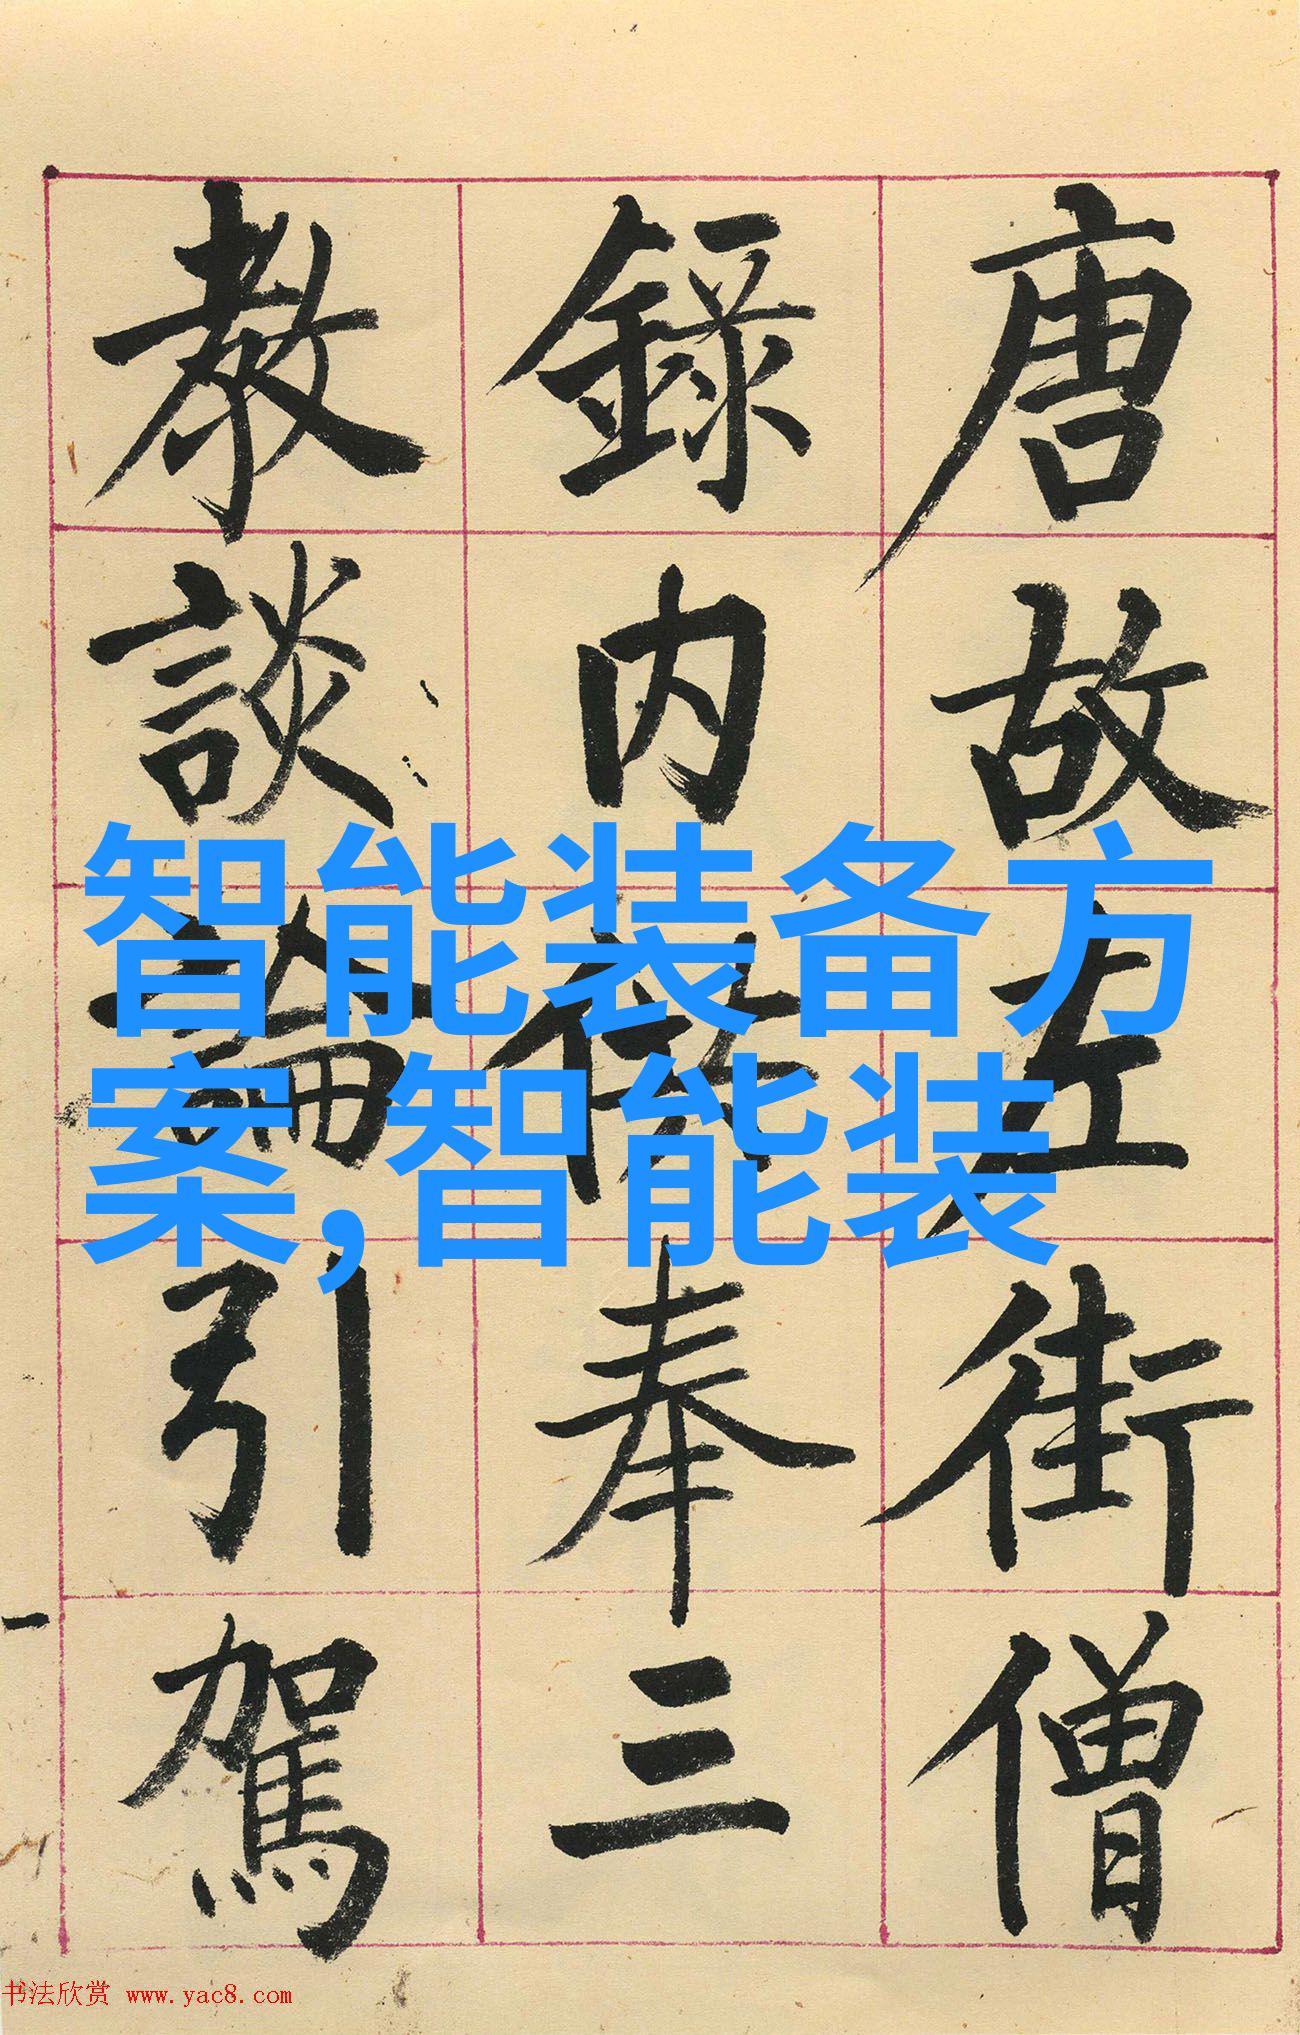 唐故左街僧
錄内供奉三
教談論引駕
智能装备方
案,智能装
书法欣赏 www.yac8.com